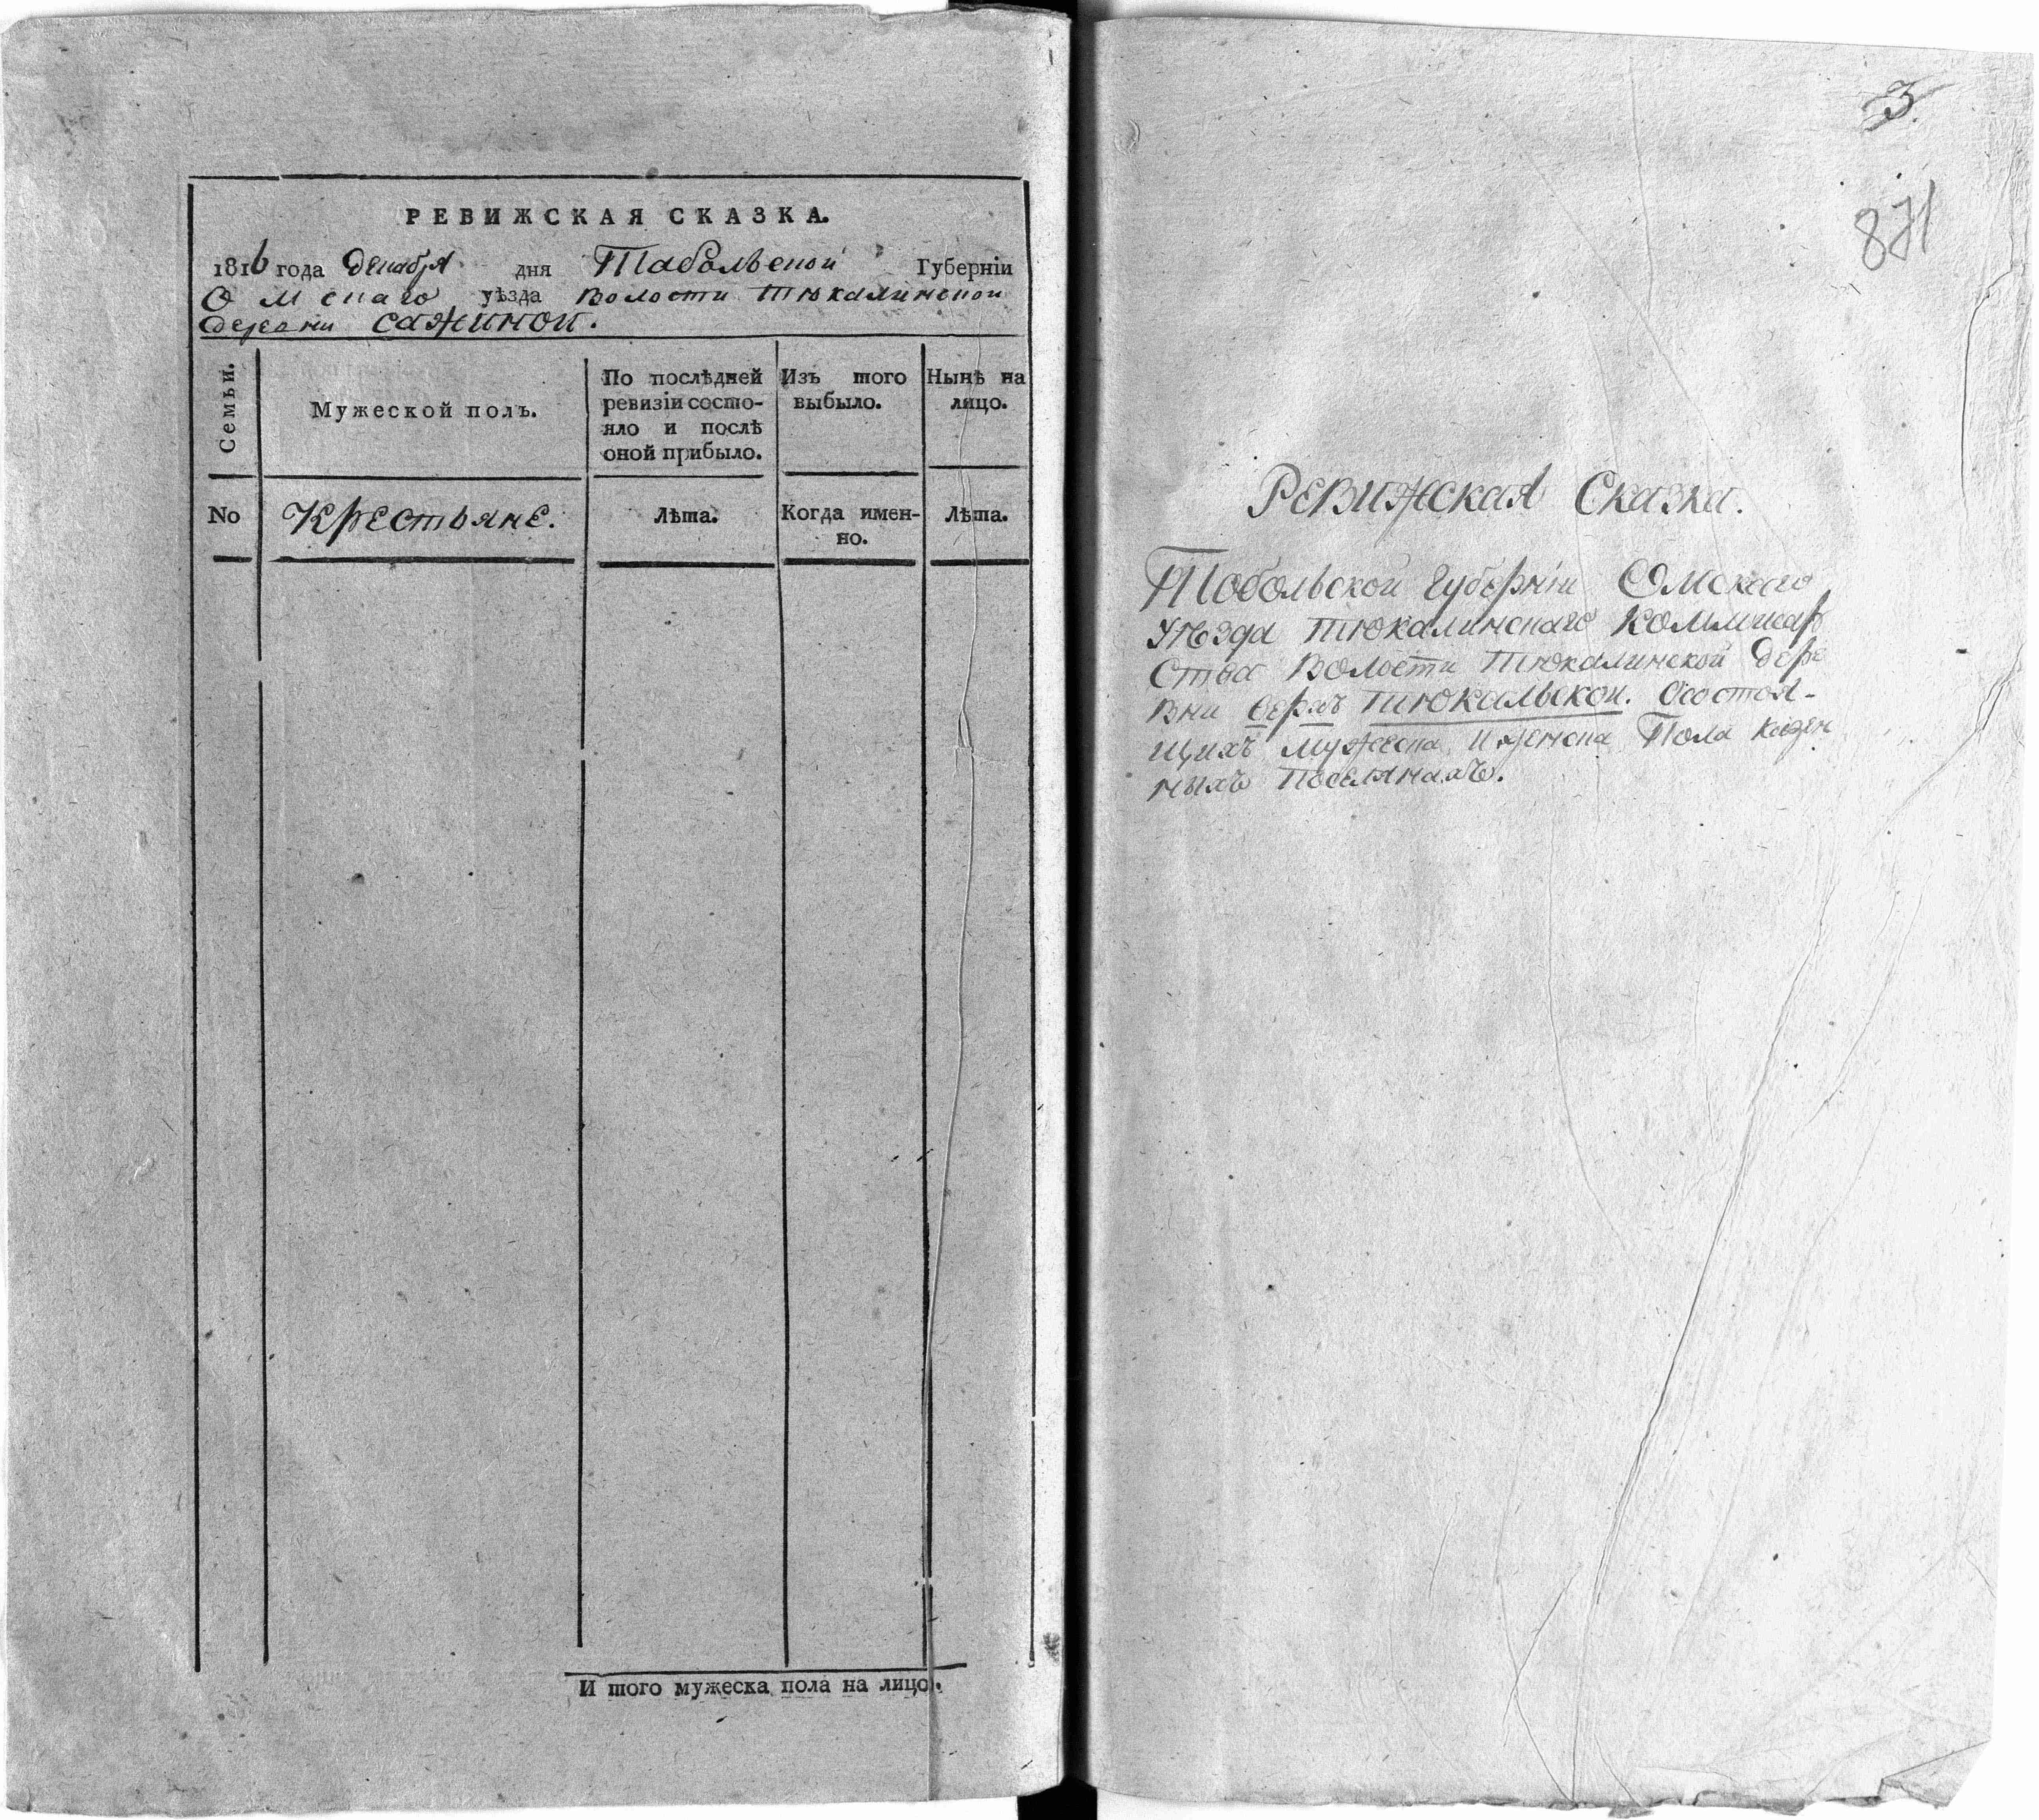 РЕВИЖСКАЯ СКАЗКА.
1816 года Декабря дня Табольской Губерніи
Омскаго уѣзда Волости Тюкалинской
деревни сажиной.
Семьи.
Мужеской полъ.
По послѣдней
ревизіи состо-
яло и послѣ
оной прибыло.
Изъ того
выбыло.
Нынѣ на
лицо.
No
Крестьяне.
Лѣта.
Когда имен-
но.
Лѣта.
И того мужеска пола на лицо.
3
871
Ревижская Сказка.
Тобольской Губерніи Омскаго
Уѣзда Тюкалинскаго Коммисар
ства Волости Тюкалинской дере
вни верхъ тюкальской. Осостоя-
щихъ мужеска и женска Пола казен
ныхъ Поселянахъ.